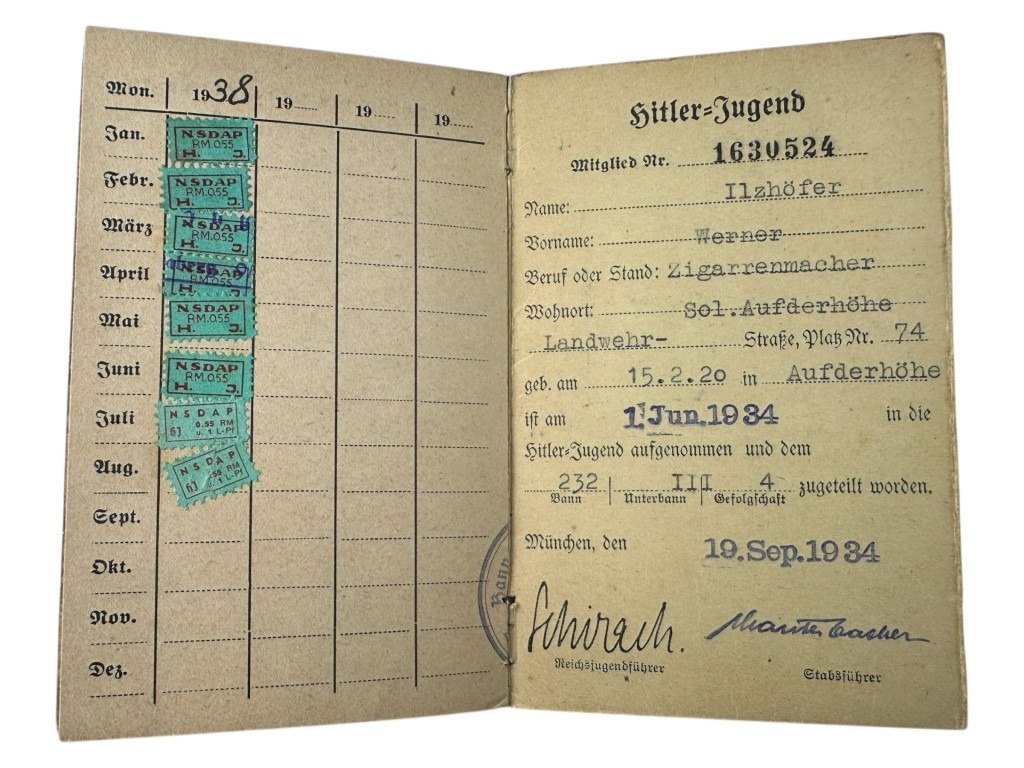 Mon. 1938 19 19 19
Jan. NSDAP RM.055 H. J.
Febr. NSDAP RM.055 H. J.
März NSDAP RM.055 H. J.
April NSDAP RM.055 H. J.
Mai NSDAP RM.055 H. J.
Juni NSDAP RM.055 H. J.
Juli NSDAP HJ 0.55 RM u. 1 L-Pf
Aug. NSDAP HJ 0.55 RM u. 1 L-Pf
Sept.
Okt.
Nov.
Dez.
Bann
Hitler=Jugend
Mitglied Nr. 1630524
Name: Ilzhöfer
Vorname: Werner
Beruf oder Stand: Zigarrenmacher
Wohnort: Sol.Aufderhöhe
Landwehr- Straße, Platz Nr. 74
geb. am 15.2.20 in Aufderhöhe
ist am 1. Jun. 1934 in die
Hitler=Jugend aufgenommen und dem
232 III 4 zugeteilt worden.
Bann Unterbann Gefolgschaft
München, den 19. Sep. 1934
Schirach.
Reichsjugendführer Stabsführer